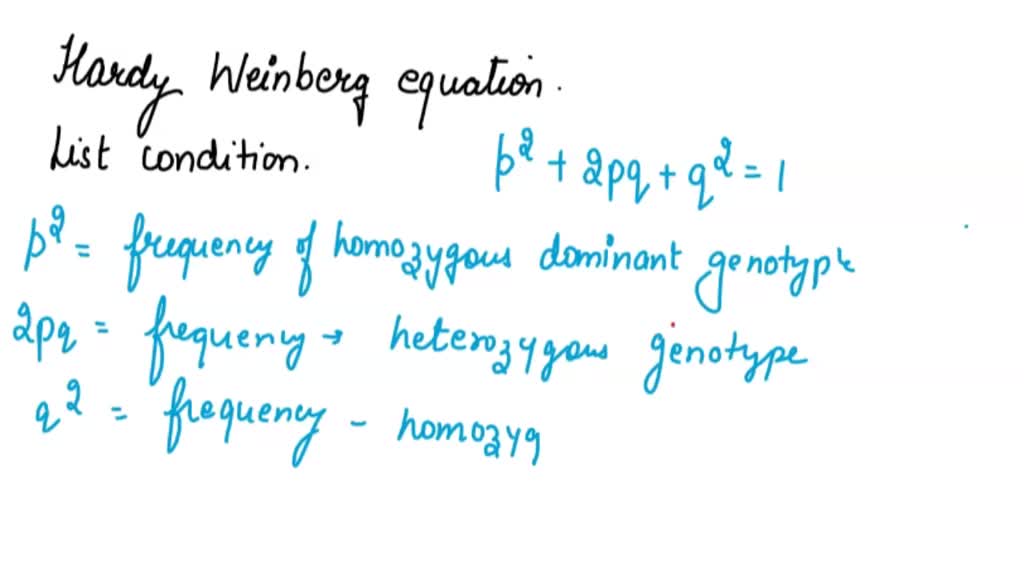 Hardy Weinberg equation.
List condition.
p² + 2pq + q² = 1
p² = frequency of homozygous dominant genotype
2pq = frequency → heterozygous genotype
q² = frequency - homozyg